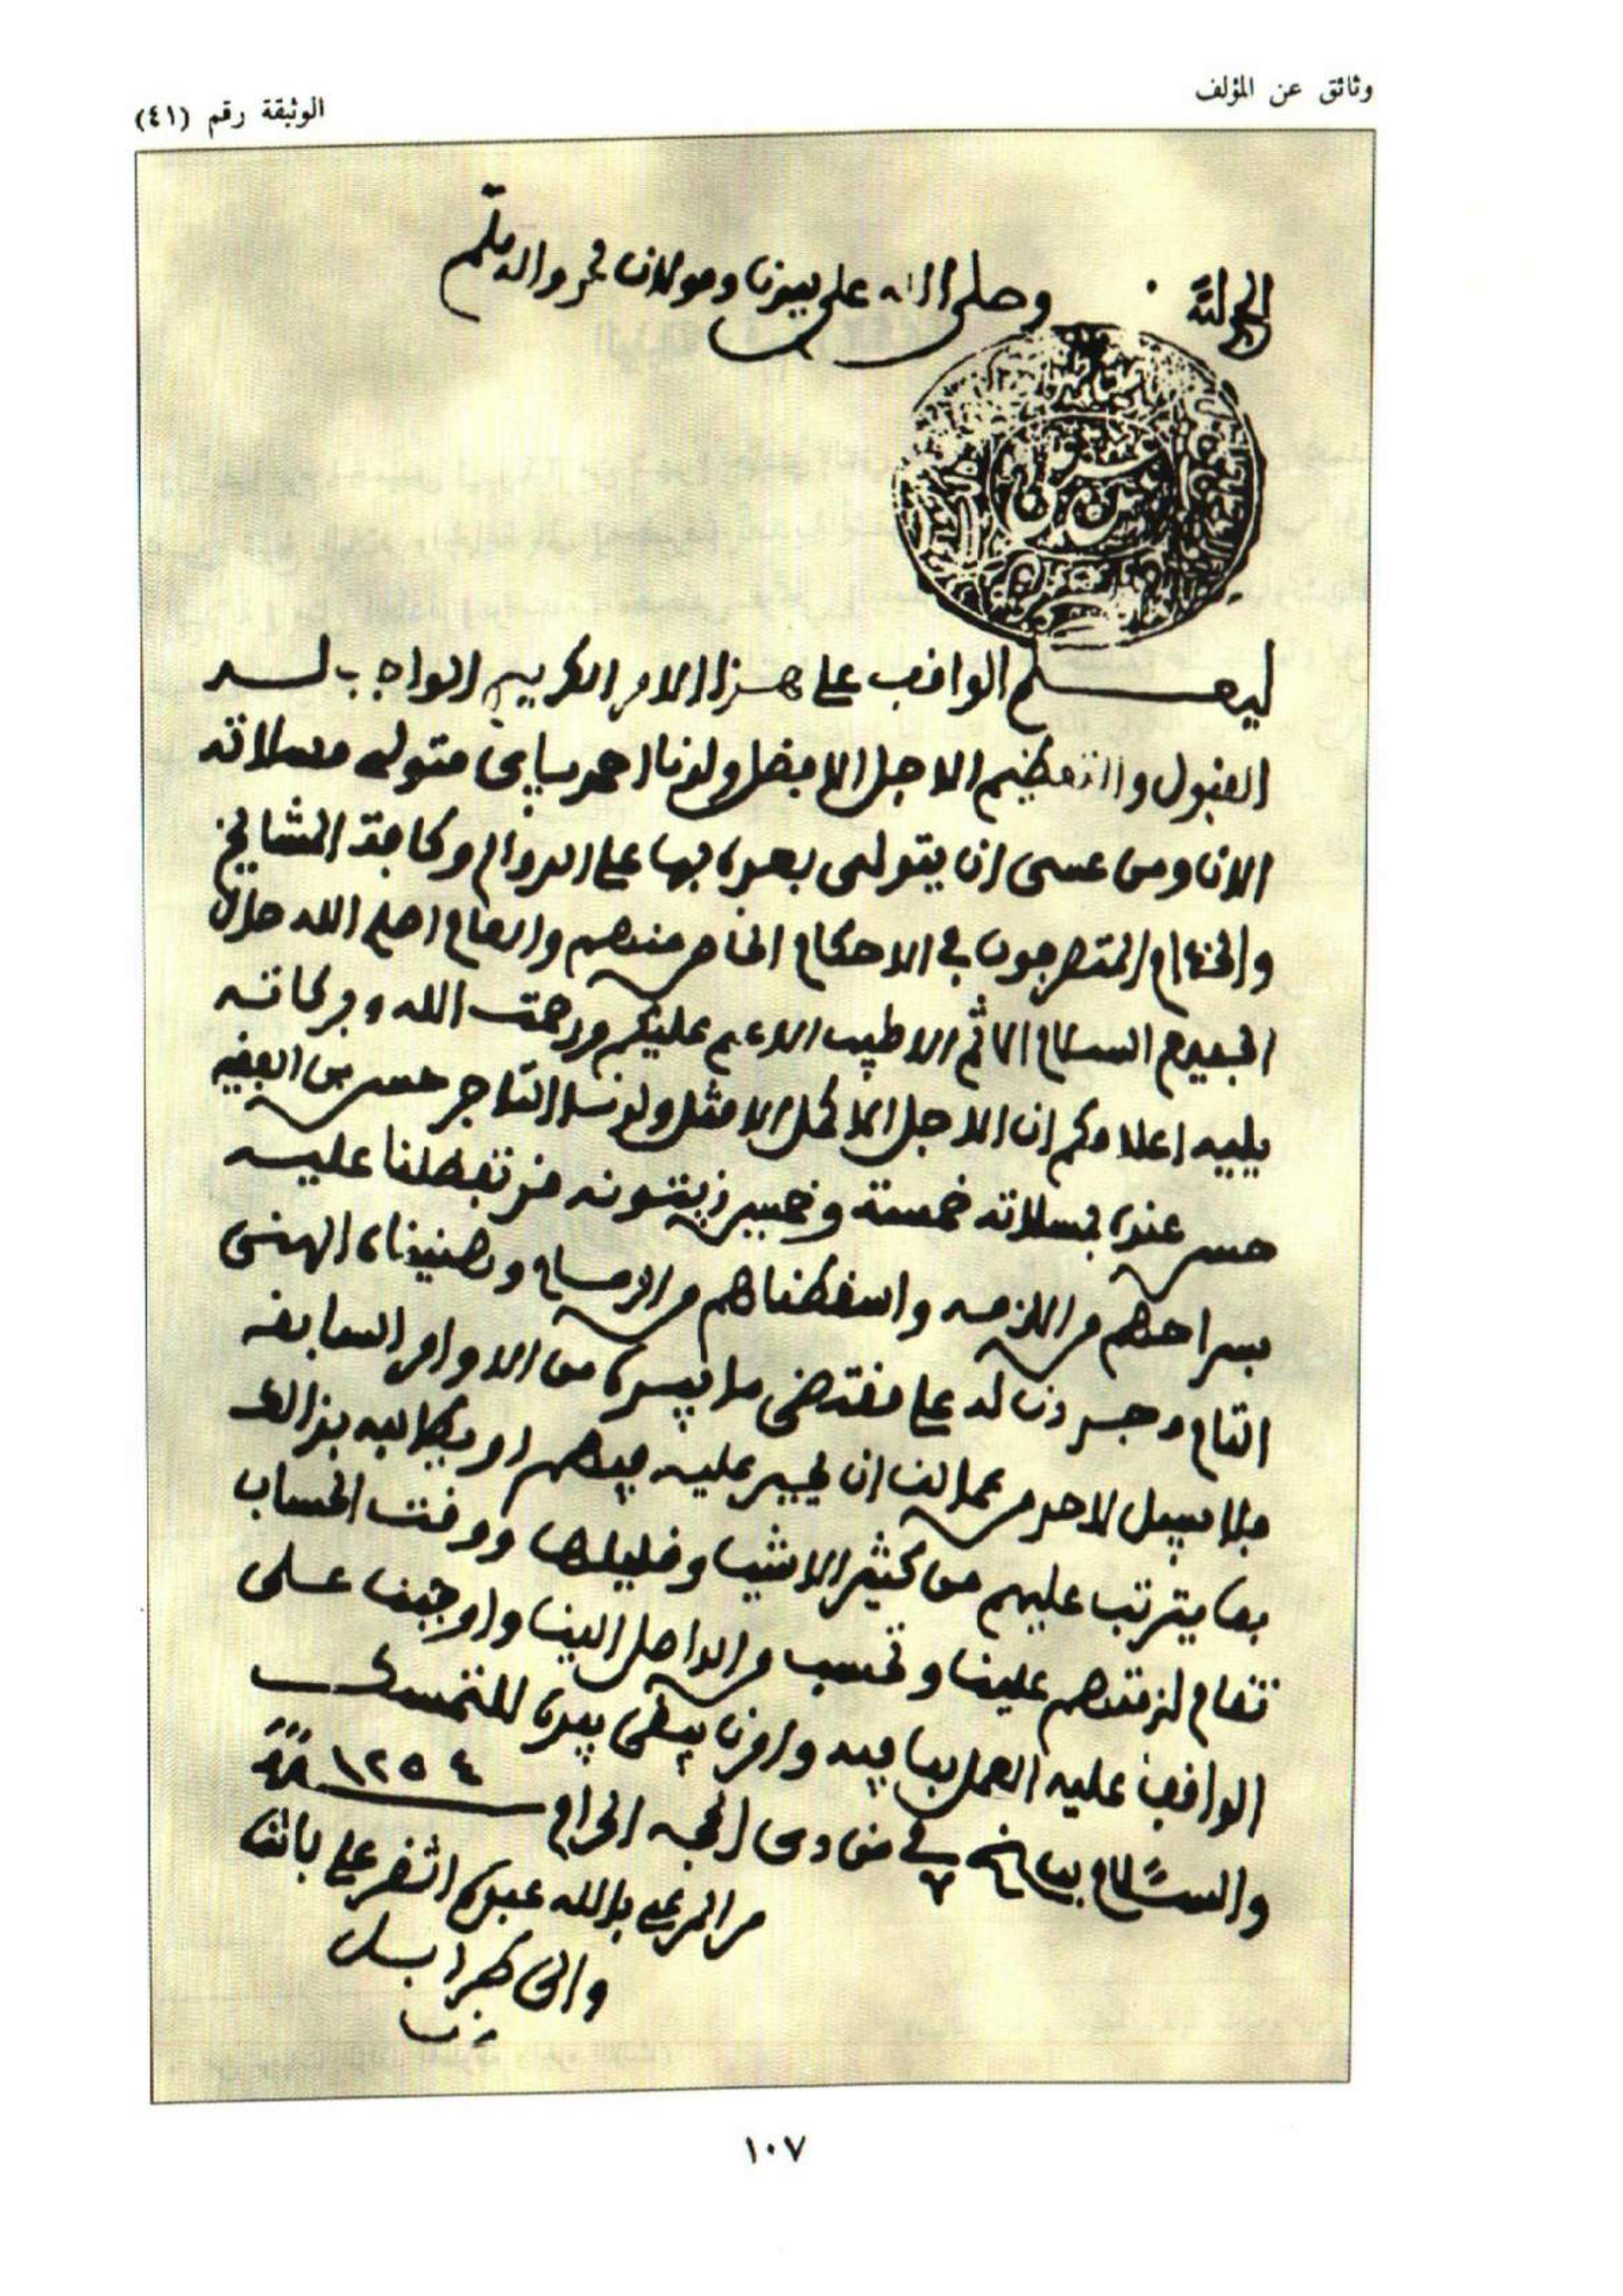 وثائق عن المؤلف
الوثيقة رقم (٤١)
الحمد لله وصلى الله على سيدنا ومولانا محمد واله وسلم
ليعلم الواقف على هذا الامر الكريم الواجب له
القبول والتعظيم الاجل الافضل ولدنا احمد باي متولى مسلاته
الان ومن عسى ان يتولى بعده بها على الدوام وكافة المشايخ
والخدام المتصرفون في الاحكام الخاص منهم والعام اصلح الله حال
الجميع السلام الاتم الاطيب الاعم عليكم ورحمت الله وبركاته
يليه اعلامكم ان الاجل الاكمل الامثل ولدنا التاجر حسن بن الفقيه
حسن عنده بمسلاته خمسة وخمسين زيتونه قد تفضلنا عليه
بسراحهم من اللزمه واسقطناهم من
التام له على مقتضى ما بيده من الاوامر السابقه
فلا سبيل لاحد من عمالنا ان عليه فيهم او يطالبه بذالك
بما يترتب عليهم من كثير الاشيا وقليلها ووقت الحساب
تقام لزمتهم علينا وتحسب من الواصل الينا واوجبنا على
الواقف عليه العمل بما فيه وامرنا يبقى بيده للتمسك
والسلام بتاريخ في ذى الحجه الحرام ١٢٥٤
من بالله عبده على باشا
والى طرابلس
١٠٧